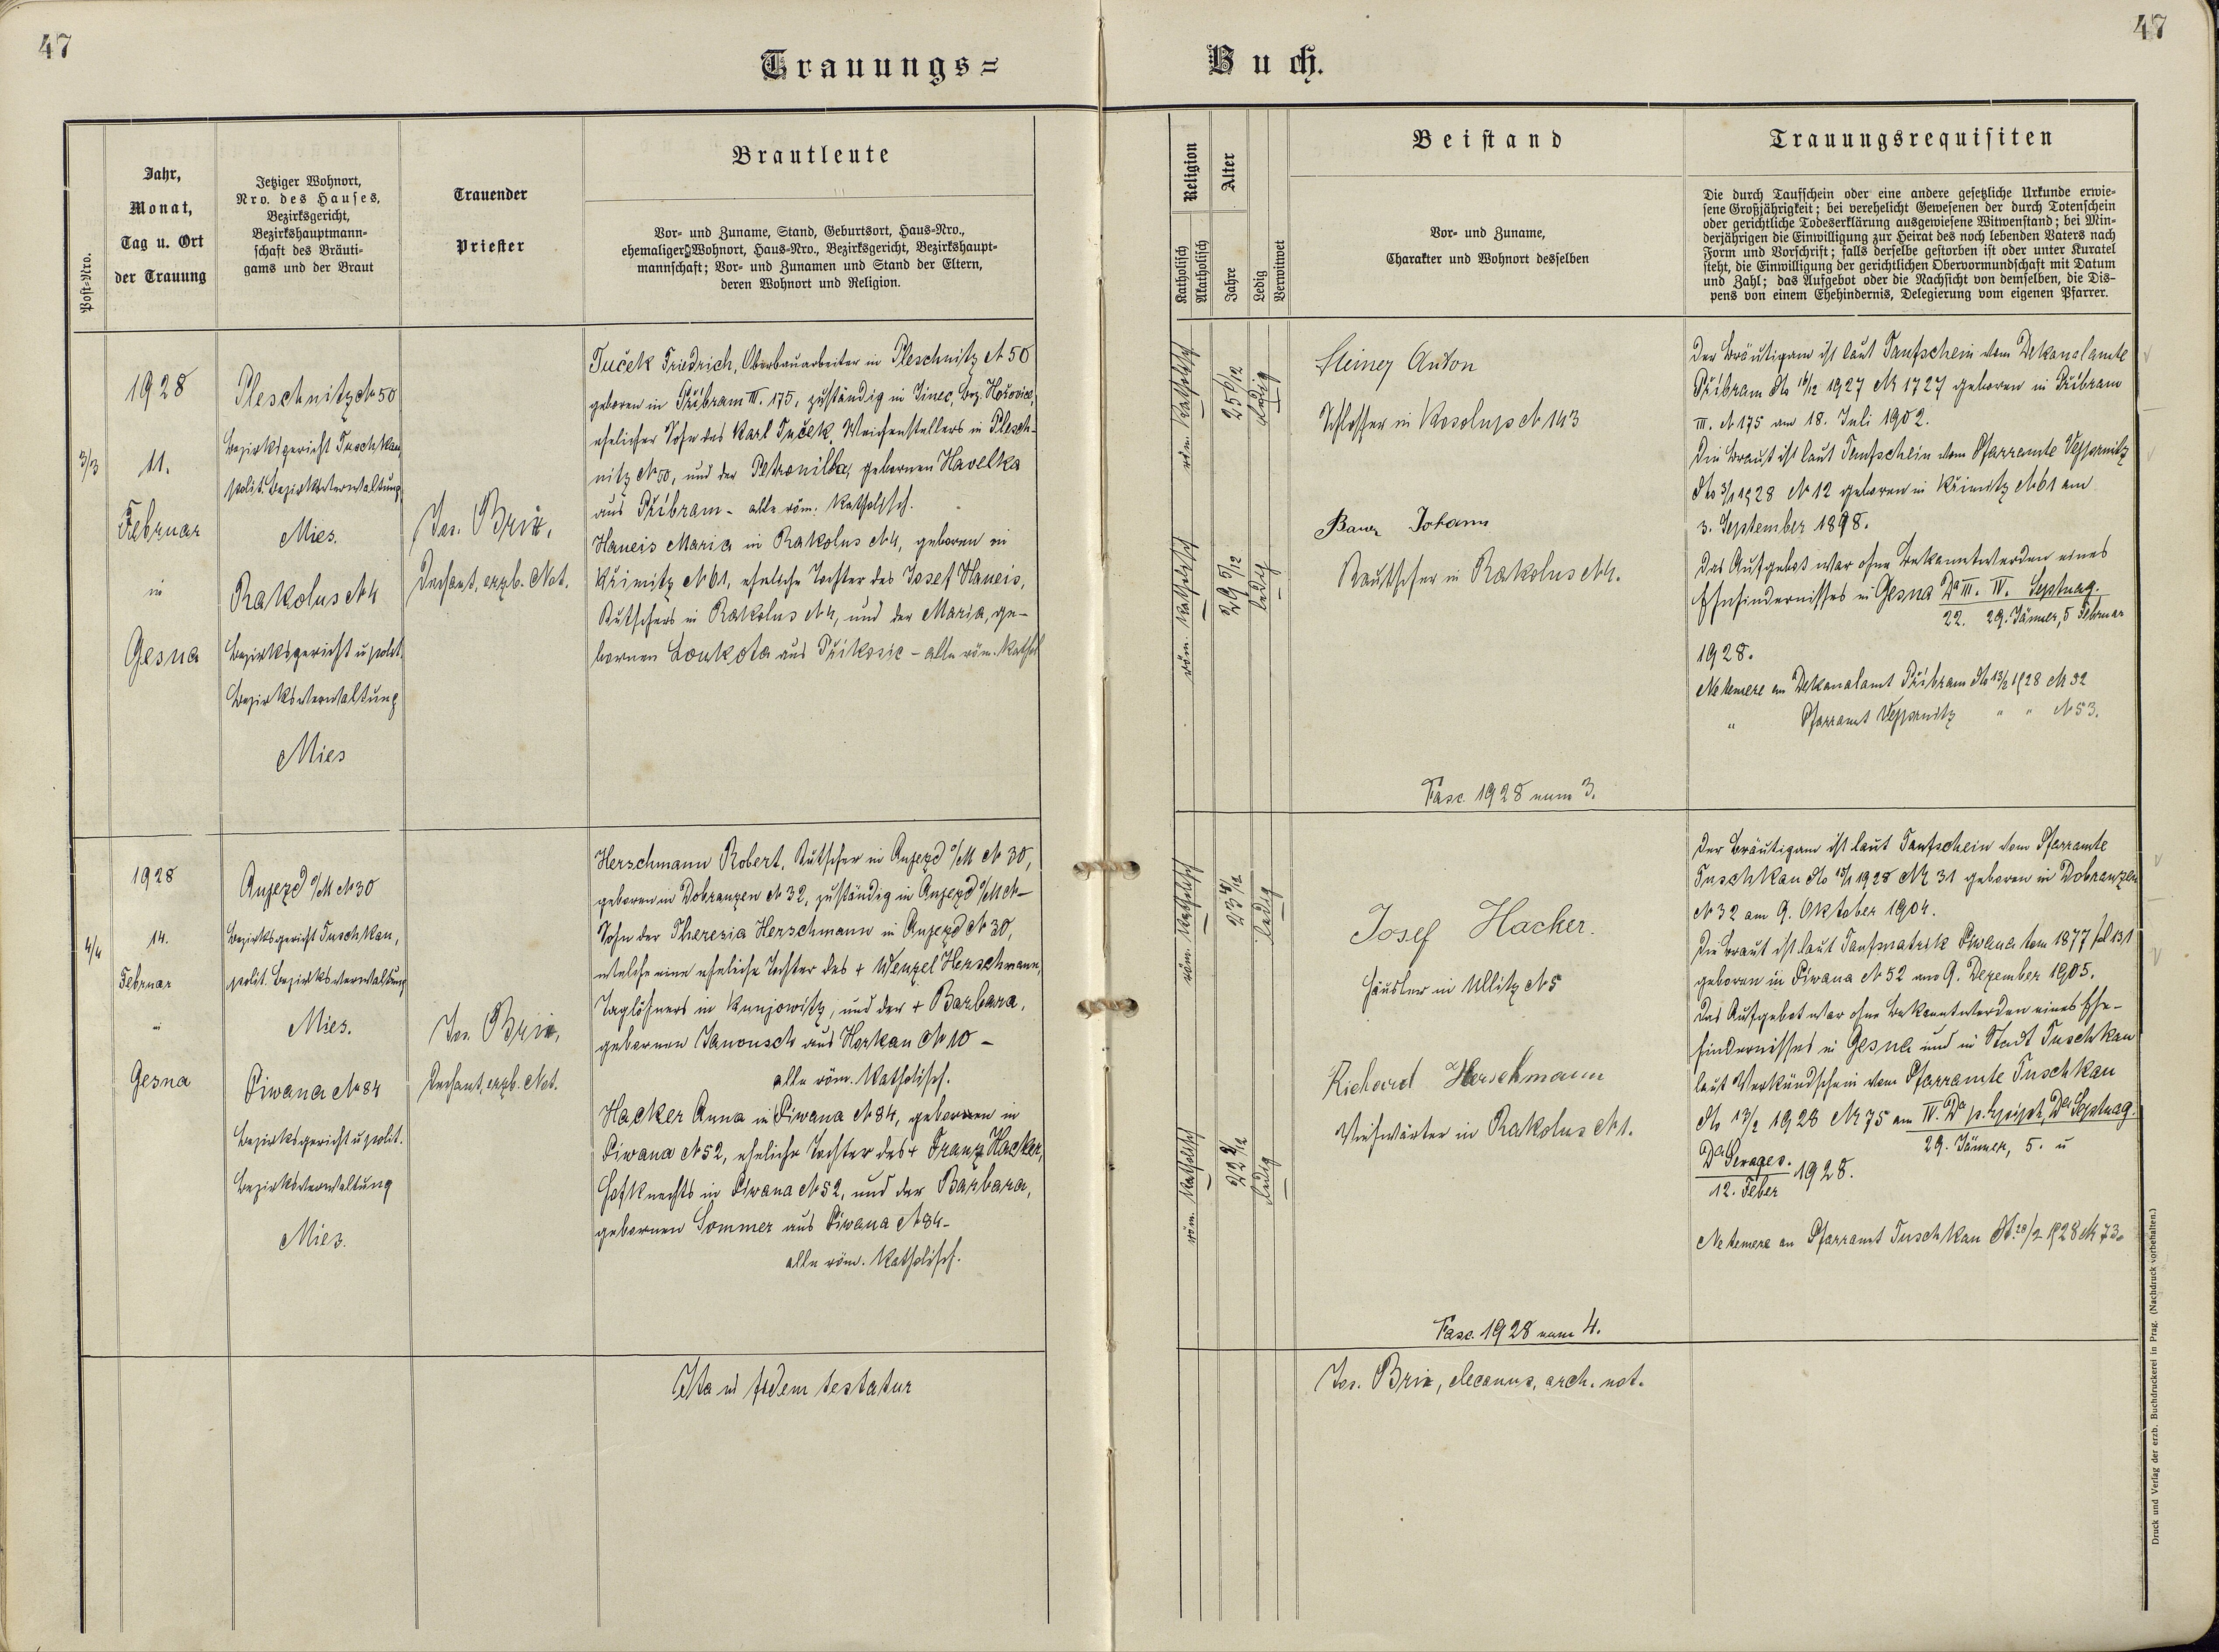 47
47
Trauungs=
Buch.
Post=Nro.
Jahr,
Monat,
Tag u. Ort
der Trauung
Jetziger Wohnort,
Nro. des Hauses,
Bezirksgericht,
Bezirkshauptmann=
schaft des Bräuti=
gams und der Braut
Trauender
Priester
Brautleute
Vor= und Zuname, Stand, Geburtsort, Haus=Nro.,
ehemaliger Wohnort, Haus=Nro., Bezirksgericht, Bezirkshaupt=
mannschaft; Vor= und Zunamen und Stand der Eltern,
deren Wohnort und Religion.
Religion
Katholisch
Akatholisch
Alter
Jahre
Ledig
Verwitwet
Beistand
Vor= und Zuname,
Charakter und Wohnort desselben
Trauungsrequisiten
Die durch Taufschein oder eine andere gesetzliche Urkunde erwie=
sene Großjährigkeit; bei verehelicht Gewesenen der durch Totenschein
oder gerichtliche Todeserklärung ausgewiesene Witwenstand; bei Min=
derjährigen die Einwilligung zur Heirat des noch lebenden Vaters nach
Form und Vorschrift; falls derselbe gestorben ist oder unter Kuratel
steht, die Einwilligung der gerichtlichen Obervormundschaft mit Datum
und Zahl; das Aufgebot oder die Nachsicht von demselben, die Dis=
pens von einem Ehehindernis, Delegierung vom eigenen Pfarrer.
3/3
1928
11.
Februar
in
Gesna
Pleschnitz № 50
Bezirksgericht Tuschkau
polit. Bezirksverwaltung
Mies.
Rakolus № 4
Bezirksgericht u polit.
Bezirksverwaltung
Mies
Jos. Brix,
Dechant, erzb. Not.
Tuček Friedrich, Oberbauarbeiter in Pleschnitz № 50
geboren in Přibram III. 175, zuständig in Jinec, Bez. Hořovice,
ehelicher Sohn des Karl Tuček, Weichenstellers in Plesch-
nitz № 50, und der Petronilla, gebornen Havelka
aus Přibram - alle röm. katholisch.
Haneis Maria in Rakolus № 4, geboren in
Křimitz № 61, eheliche Tochter des Josef Haneis,
Kutschers in Rakolus № 4, und der Maria, ge-
bornen Loukota aus Přikosic - alle röm. kathol
röm. katholisch
25 6/12
ledig
röm. katholisch
29 5/12
ledig
Steiner Anton
Schlosser in Kosolup № 143
Bauer Johann
Kutscher in Rakolus № 4.
Fasc. 1928 num 3.
Der Bräutigam ist laut Taufschein vom Dekanalamte
Přibram dto 16/12 1927 № 1727 geboren in Přibram
III. № 175 am 18. Juli 1902.
Die Braut ist laut Taufschein vom Pfarramte Wepprnitz
dto 3/1 1928 № 12 geboren in Křimitz № 61 am
3. September 1898.
Das Aufgebot war ohne Bekanntwerden eines
Ehehindernisses in Gesna Da III. IV. Septuag.
22. 29. Jänner, 5 Februar
1928.
Netemere an Dekanalamt Přibram dto 13/2 1928 № 32
" Pfarramt Wepprnitz " " № 53.
4/4
1928
14.
Februar
in
Gesna
Anjezd o/M № 30
Bezirksgericht Tuschkau,
polit. Bezirksverwaltung
Mies.
Piwana № 84
Bezirksgericht u polit.
Bezirksverwaltung
Mies.
Jos. Brix,
Dechant, erzb. Not.
Herschmann Robert, Kutscher in Anjezd o/M № 30,
geboren in Dobranzen № 32, zuständig in Anjezd o/M ch-
Sohn der Theresia Herschmann in Anjezd № 30,
welche eine eheliche Tochter des + Wenzel Herschmann,
Taglöhners in Kunjowitz, und der + Barbara,
gebornen Janousch aus Horkau № 10 -
alle röm. katholisch.
Hacker Anna in Piwana № 84, geboren in
Piwana № 52, eheliche Tochter des + Franz Hacker,
Hofknechts in Piwana № 52, und der Barbara,
gebornen Sommer aus Piwana № 84-
alle röm. katholisch.
röm. katholisch
23 4/12
ledig
röm. katholisch
22 2/12
ledig
Josef Hacker.
Häusler in Ullitz № 5
Richard Herschmann
Viehwärter in Rakolus № 1.
Fasc. 1928 num 4.
Der Bräutigam ist laut Taufschein vom Pfarramte
Tuschkau dto 13/1 1928 № 31 geboren in Dobranzen
№ 32 am 9. Oktober 1904.
Die Braut ist laut Taufmatrik Piwana tom 1877 fol 131
geboren in Piwana № 52 am 9. Dezember 1905.
Das Aufgebot war ohne Bekanntwerden eines Ehe-
hindernisses in Gesna und in Stadt Tuschkau
laut Verkündschein vom Pfarramte Tuschkau
dto 13/2 1928 № 75 am IV. Da p. Epiph, Da Septuag.
29. Jänner, 5. u
Da Sexages. 1928.
12. Feber
Netemere an Pfarramt Tuschkau dt. 20/2 1928 № 73.
Ita in fidem testatur
Jos. Brix, decanus, arch. not.
Druck und Verlag der erzb. Buchdruckerei in Prag. (Nachdruck vorbehalten.)